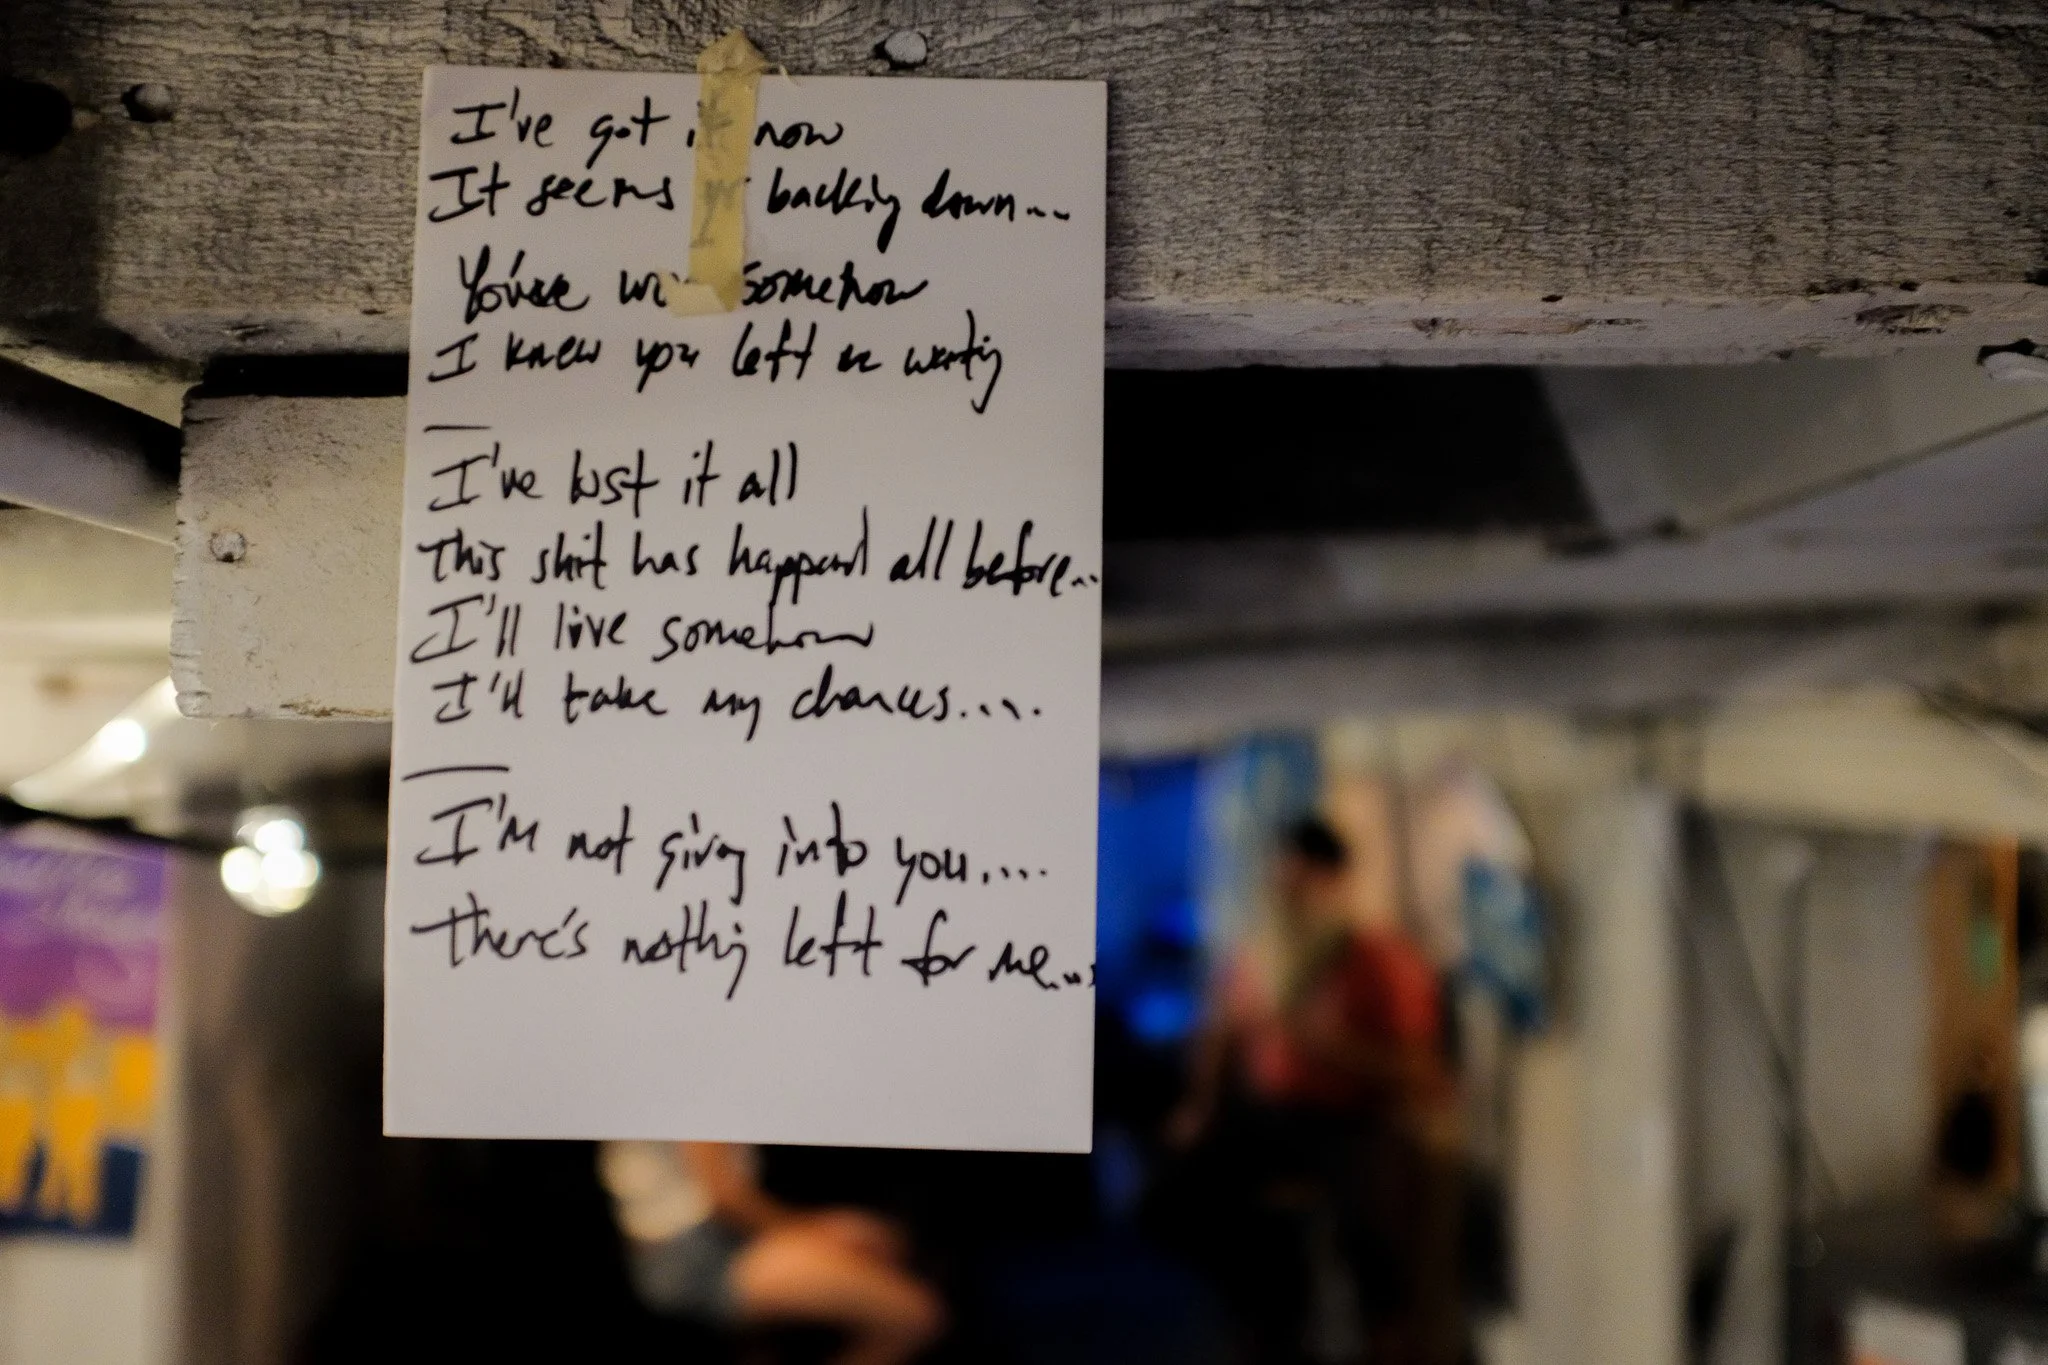 I've got it now
It seems backing down...
You've somehow
I knew you left me wanting
I've lost it all
This shit has happened all before...
I'll live somehow
I'll take my chances....
I'm not giving into you....
There's nothing left for me....